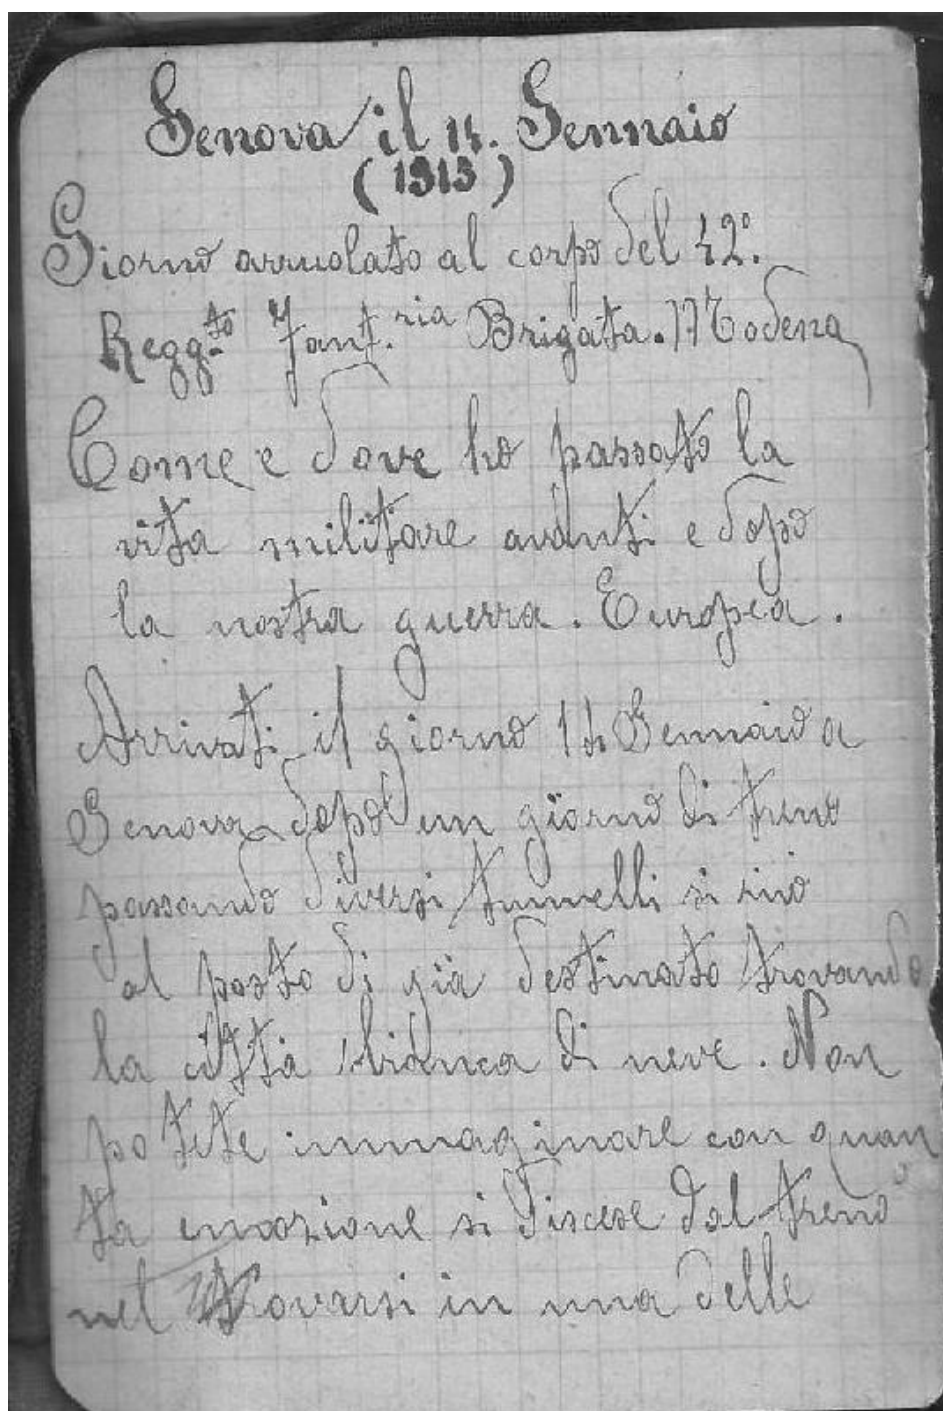 Genova il 14. Gennaio
(1915)
Giorno arruolato al corpo del 42°.
Regg.to Fant.ria Brigata. Modena
Come e dove ho passato la
vita militare avanti e dopo
la nostra guerra. Europea.
Arrivati il giorno 14 Gennaio a
Genova dopo un giorno di treno
passando diversi tunnelli si
al posto di già destinato trovando
la città bianca di neve. Non
potete immaginare con quan
ta emozione si discese dal treno
nel trovarsi in una delle